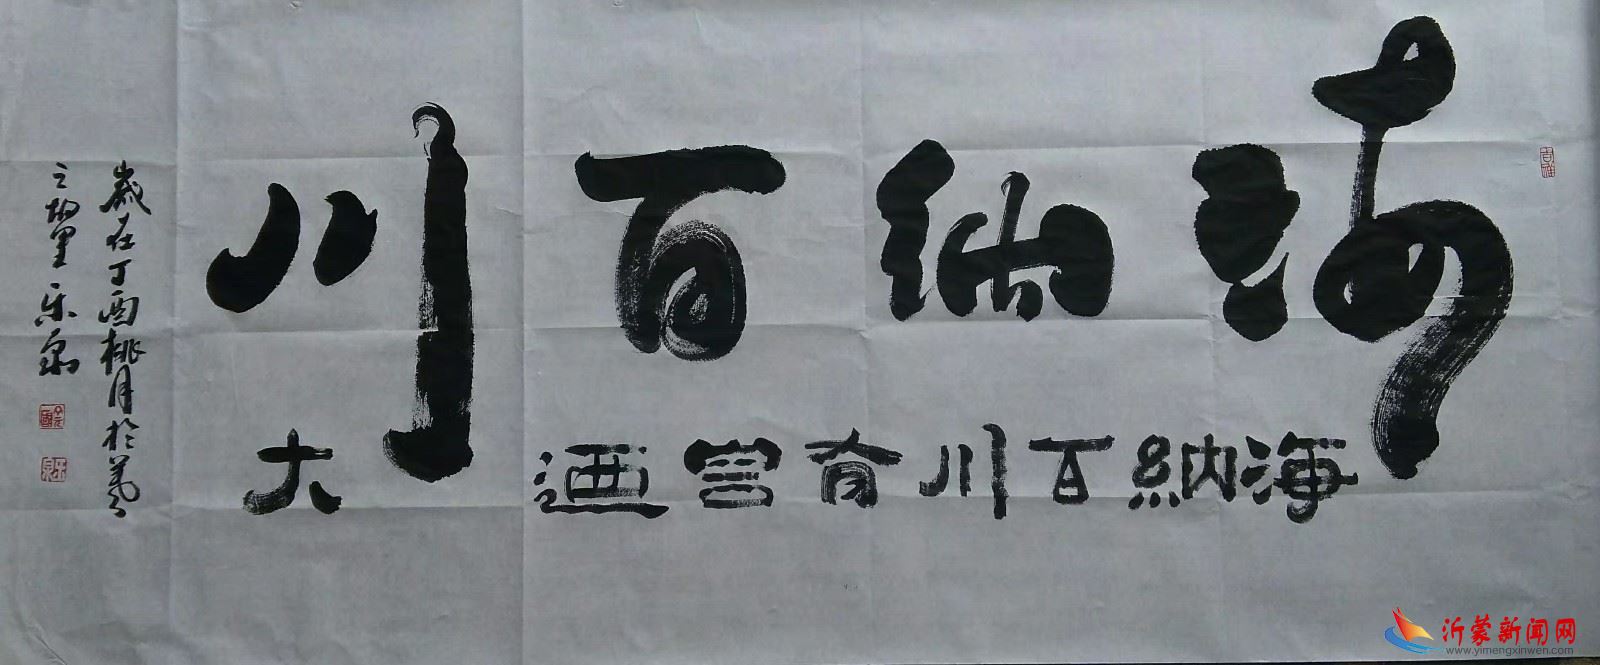 海纳百川
海納百川有容迺大
歲在丁酉桃月於羲
之故里乐泉
沂蒙新闻网
www.yimengxinwen.com